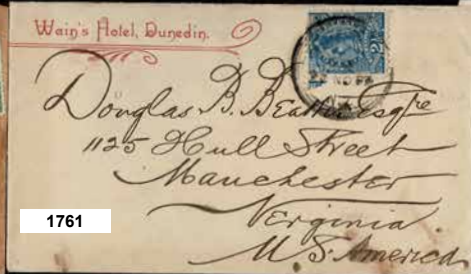 Wain's Hotel, Dunedin.
Douglas B. Beattie Esqre
1125 Hull Street
Manchester
Verginia.
U.S. America.
1761